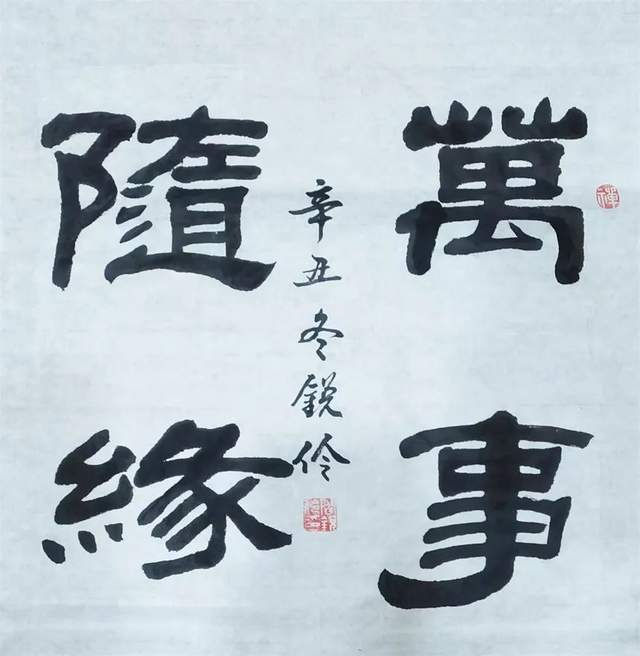 萬事
隨緣
辛丑冬銳伶